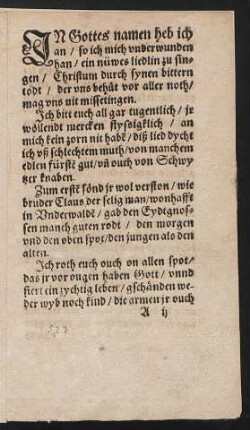 IN Gottes namen heb ich
an / so ich mich vnderwunden
han / ein nüwes liedlin zu sin-
gen / Christum durch synen bittern
todt / der vns behüt vor aller noth /
mag vns nit misselingen.
Ich bitt euch all gar tugentlich / jr
wöllendt mercken flysigklich / an
mich kein zorn nit habt / diß lied dycht
ich vß schlechtem muth / von manchem
edlen fürste gut / vñ ouch von Schwy
tzer knaben.
Zum erste sönd jr wol verston / wie
bruder Claus der selig man / wonhafft
in Vnderwaldē / gab den Eydtgnos-
sen manch guten rodt / den morgen
vnd den oben spot / den jungen als den
alten.
Ich roth euch ouch on allen spot /
das jr vor ougen haben Gott / vnnd
fürt ein zychtig leben / gschänden we-
der wyb noch kind / die armen jr ouch
A ij